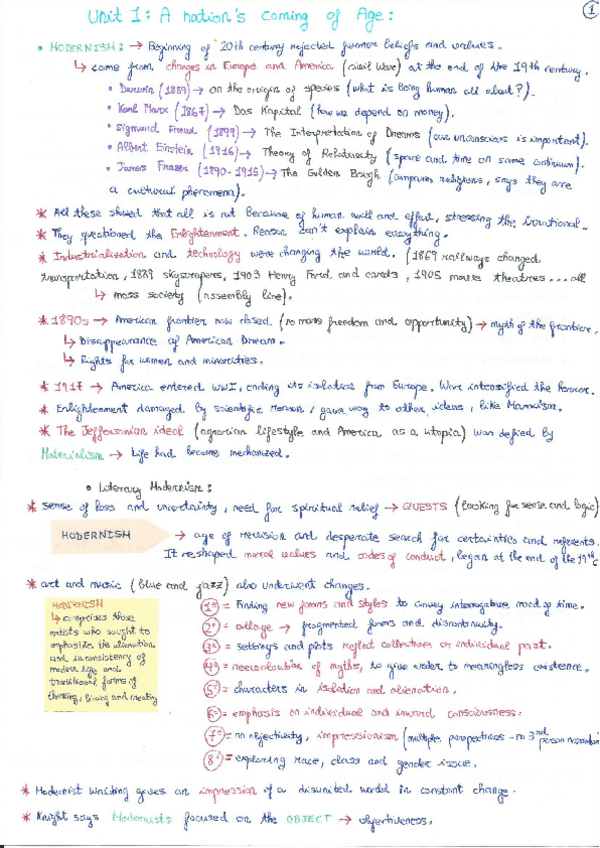 Unit 1: A nation's coming of Age:
1
• MODERNISM: → Beginning of 20th century rejected former beliefs and values.
↳ came from changes in Europe and America (civil wars) at the end of the 19th century.
• Darwin (1859) → on the origin of species (what is being human all about?).
• Karl Marx (1867) → Das Kapital (how we depend on money).
• Sigmund Freud (1899) → The Interpretation of Dreams (our unconscious is important).
• Albert Einstein (1916) → Theory of Relativity (space and time on same continuum).
• James Frazer (1890-1915) → The Golden Bough (compares religions, says they are
a cultural phenomena).
* All these showed that all is not because of human will and effort, stressing the irrational.
* They questioned the Enlightenment. Reason can't explain everything.
* Industrialisation and technology were changing the world. (1869 railways changed
transportation, 1889 skyscrapers, 1903 Henry Ford and cards, 1905 movies theatres... all
↳ mass society (assembly line).
* 1890s → American frontier now closed. (no more freedom and opportunity) → myth of the frontier.
↳ Disappearance of American Dream.
↳ Rights for women and minorities.
* 1917 → America entered WWI, ending its isolation from Europe. Were intensified the horror.
* Enlightenment damaged by scientific reason, gave way to other ideas, like Marxism.
* The Jeffersonian ideal (agrarian lifestyle and America as a utopia) was defied by
Materialism → Life had become mechanized.
• Literary Modernism:
* sense of loss and uncertainty, need for spiritual relief → QUESTS (looking for sense and logic)
MODERNISM → age of revision and desperate search for certainties and referents.
It reshaped moral values and codes of conduct, began at the end of the 19th c
* art and music (blue and jazz) also underwent changes.
MODERNISM
↳ comprises those
artists who sought to
emphasize the alienation
and inconsistency of
modern life and
traditional forms of
thinking, living and creating
1º = Finding new forms and styles to convey interrogative mood of time.
2º = collage → fragmented forms and discontinuity.
3º = settings and plots reflect collective or individual past.
4º = reevaluation of myths, to give order to meaningless existence.
5º = characters in isolation and alienation.
6º = emphasis on individual and inward consciousness.
7º = no objectivity, impressionism (multiple perspectives - no 3rd person narrator)
8º = exploring race, class and gender issue.
* Modernist writing gives an impression of a disunited world in constant change.
* Knight says Modernists focused on the OBJECT → objectiveness.